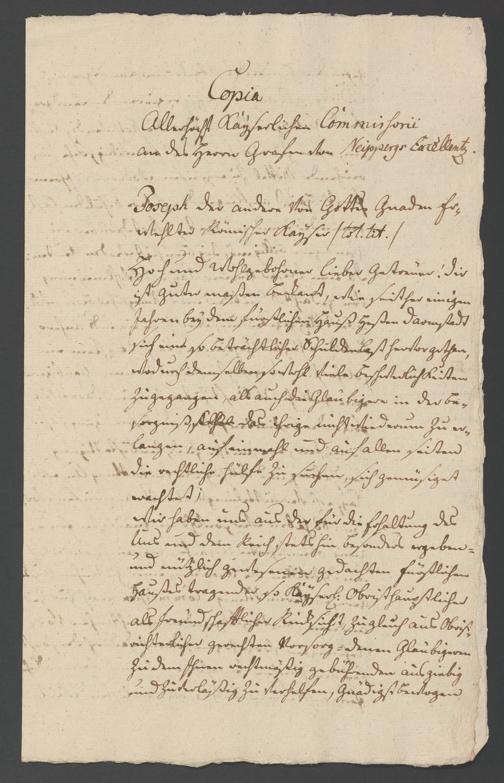 Copia
Allerhöchst Kayserlichen Commissorii
an des Herrn Grafen von Neippergs Excellentz.
Joseph der andere von Gottes Gnaden Er-
wehlter Römischer Kayser /:tot. tit.:/
Hoch und Wohlgebohrner lieber Getreuer! dir
ist guter maßen bekant, wie seither einigen
Jahren bey dem fürstlichen Hauß Hessen Darmstadt
sich eine so beträchtlicher Schulden Last hervorgethan,
wodurch demselben sowohl viele beschwerlichkeiten
zugezogen, als auch die Glaubigere in der be-
sorgniß, das ihrige nicht wiederum zu er-
langen, auf einmahl und auf allen seiten
die rechtliche hülfe zu suchen, sich gemüsiget
erachtet;
Wir haben uns aus der für die Erhaltung des
Uns und dem Reich stetshin besonders ergeben-
und nützlich gewesenen gedachten fürstlichen
Haußes tragender so Kayserl: Obristhauptlicher
als freundschafftlicher Rücksicht, zugleich aus Obrist-
richterlicher gerechten Vorsorg denen Glaubigeren
zu dem Ihnen rechtmäsig gebührenden ausgiebig
und zuverläsig zu verhelfen, Gnädigst bewogen